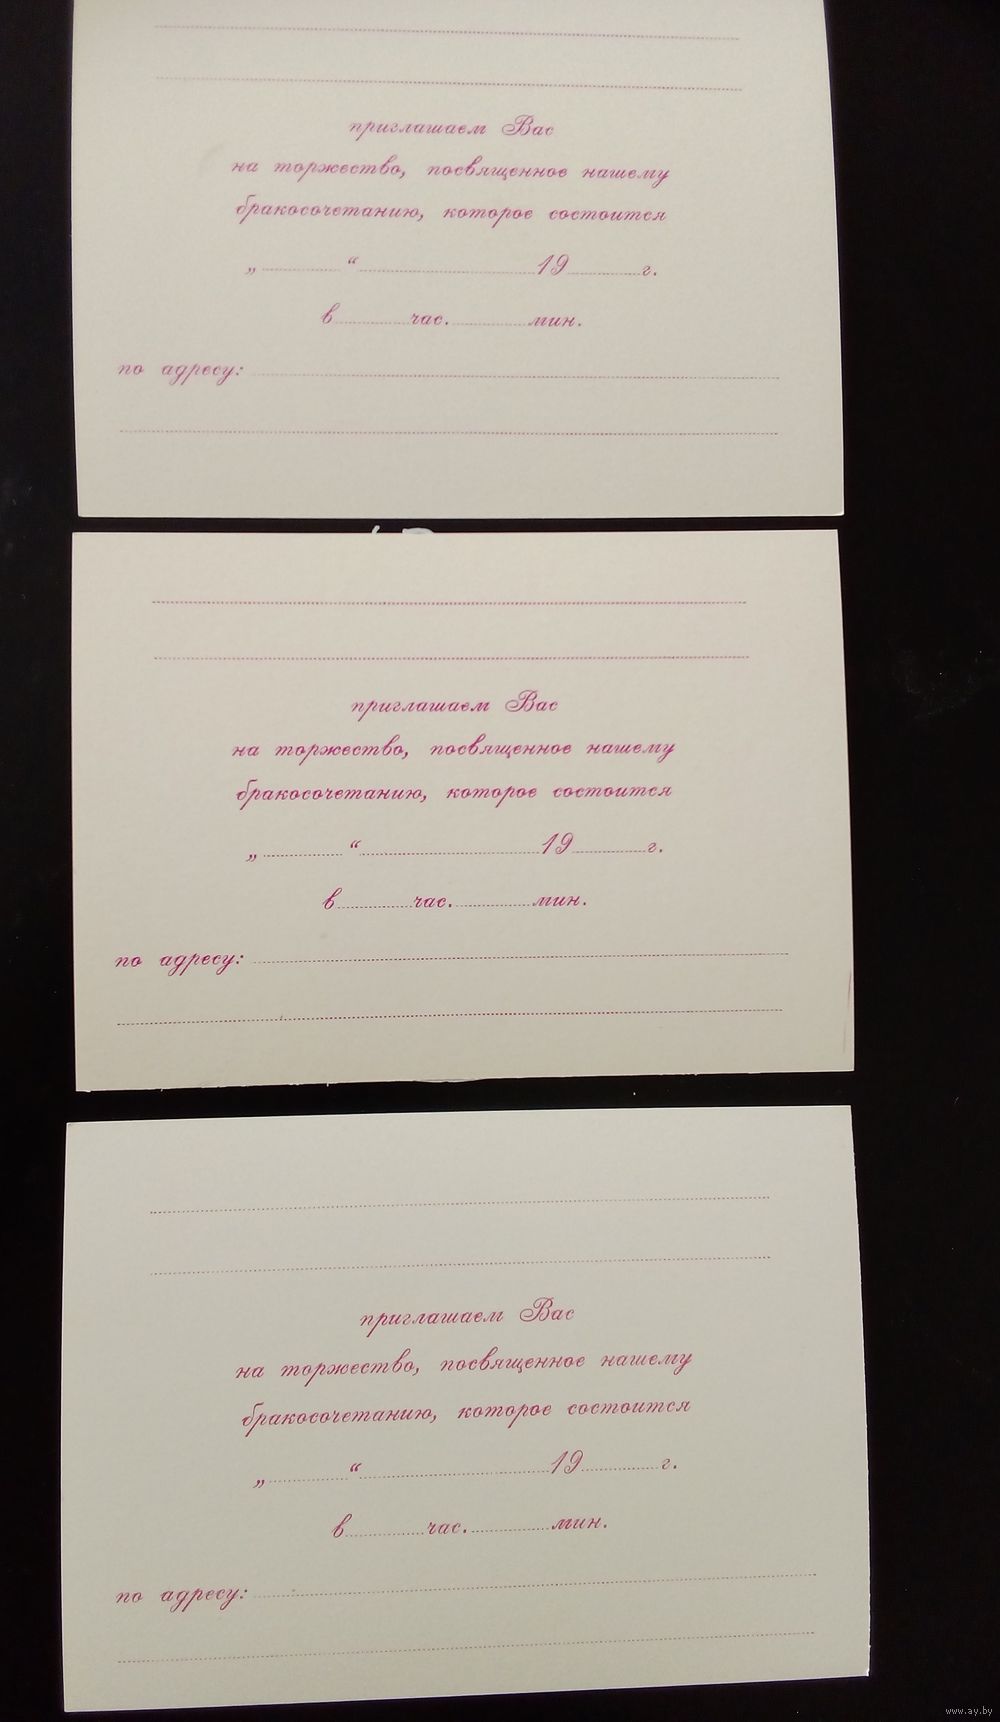 приглашаем Вас
на торжество, посвященное нашему
бракосочетанию, которое состоится
„ “ 19 г.
в час. мин.
по адресу:
приглашаем Вас
на торжество, посвященное нашему
бракосочетанию, которое состоится
„ “ 19 г.
в час. мин.
по адресу:
приглашаем Вас
на торжество, посвященное нашему
бракосочетанию, которое состоится
„ “ 19 г.
в час. мин.
по адресу:
www.ay.by